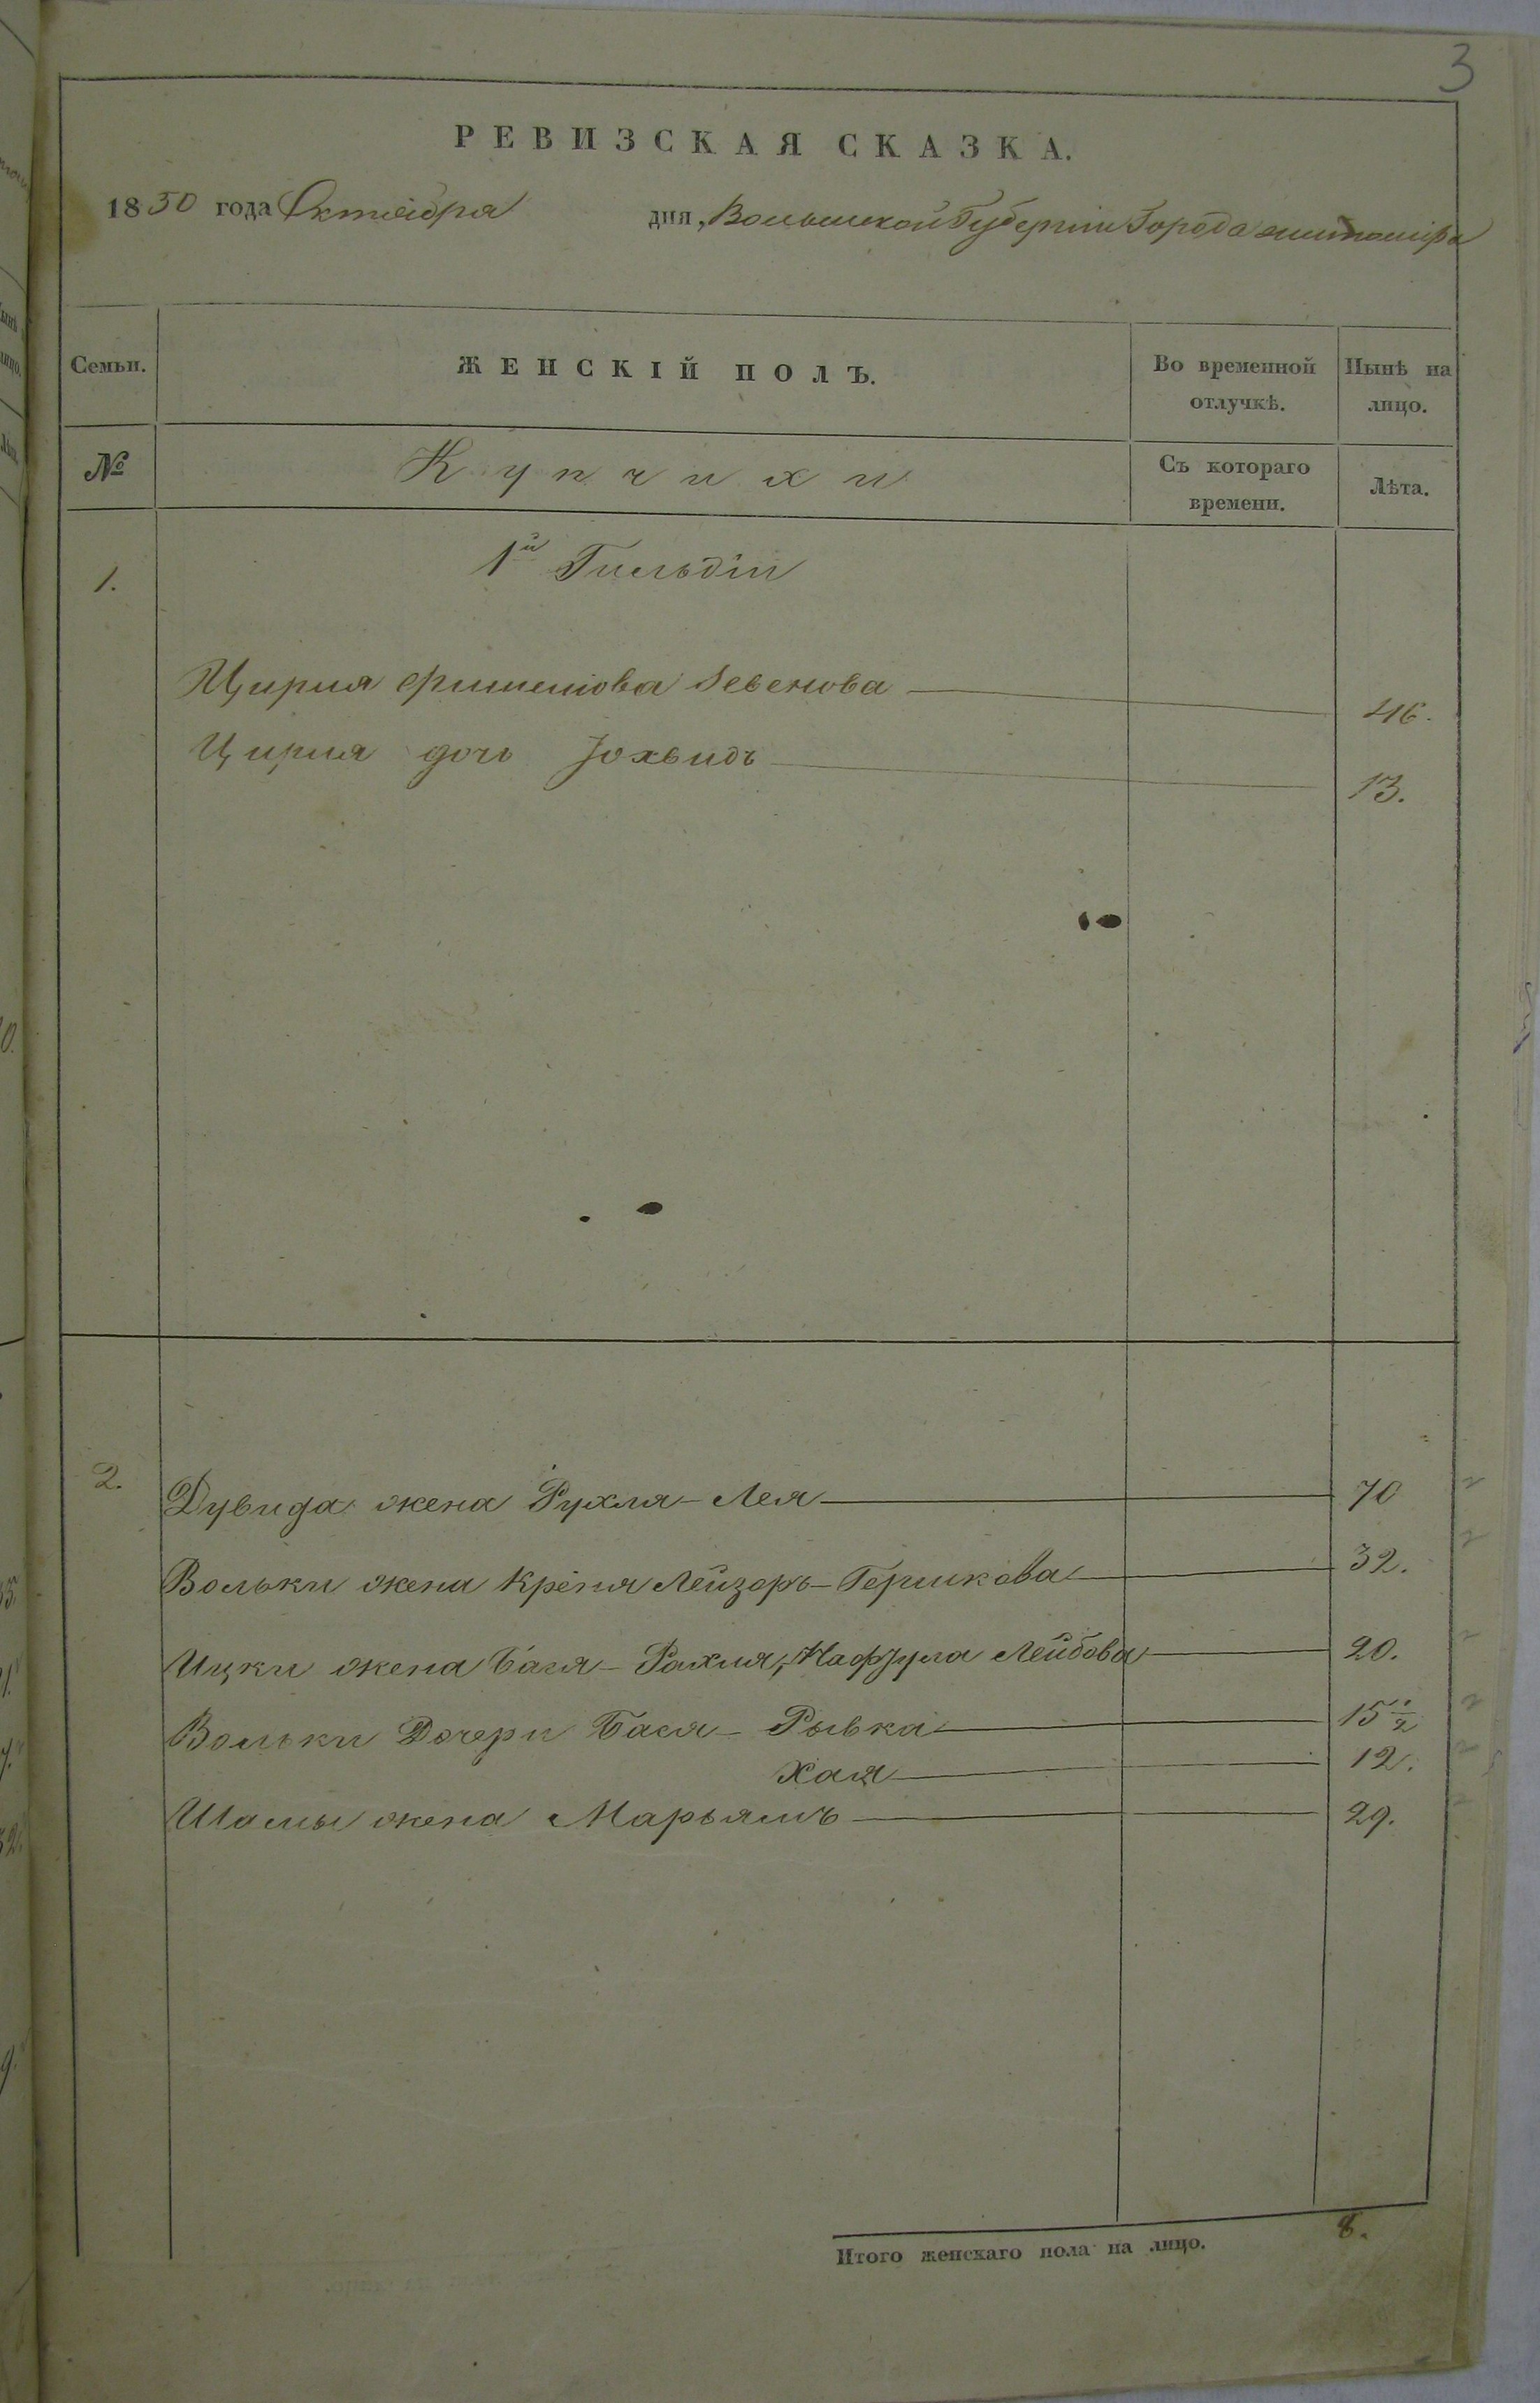 3
РЕВИЗСКАЯ СКАЗКА.
1850 года Октября дня, Волынской Губерніи Города Житомира
Семьи. ЖЕНСКІЙ ПОЛЪ. Во временной отлучкѣ. Нынѣ на лицо.
№ Купчихи Съ котораго времени. Лѣта.
1. 1й Гильдіи
Цирля 46.
Цирля дочь Іохвидъ 13.
2. Дувида жена Рухля-Лея 70
Вольки жена Крейня Лейзоръ-Гершкова 32.
Ицки жена Бася-Рахля, Лейбова 20.
Вольки Дочери Бася-Рывка 15 1/2
Хая 12.
Шамы жена Марьямъ 29.
Итого женскаго пола на лицо. 8.